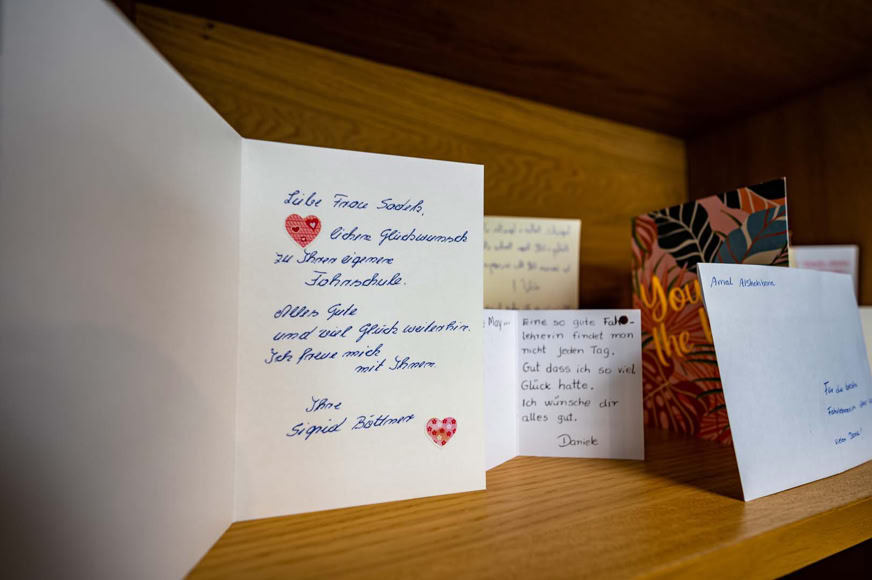 Liebe Frau
lichen Glückwunsch
zu Ihrer eigenen
Fahrschule.
Alles Gute
und viel Glück weiterhin.
Ich freue mich
mit Ihnen.
Ihre
Sigrid Böttmer
May
Eine so gute Fahr-
lehrerin findet man
nicht jeden Tag.
Gut dass ich so viel
Glück hatte.
Ich wünsche dir
alles gut.
Daniele
You
the
Amal
Für die beste
Fahrlehrerin
vielen Dank!